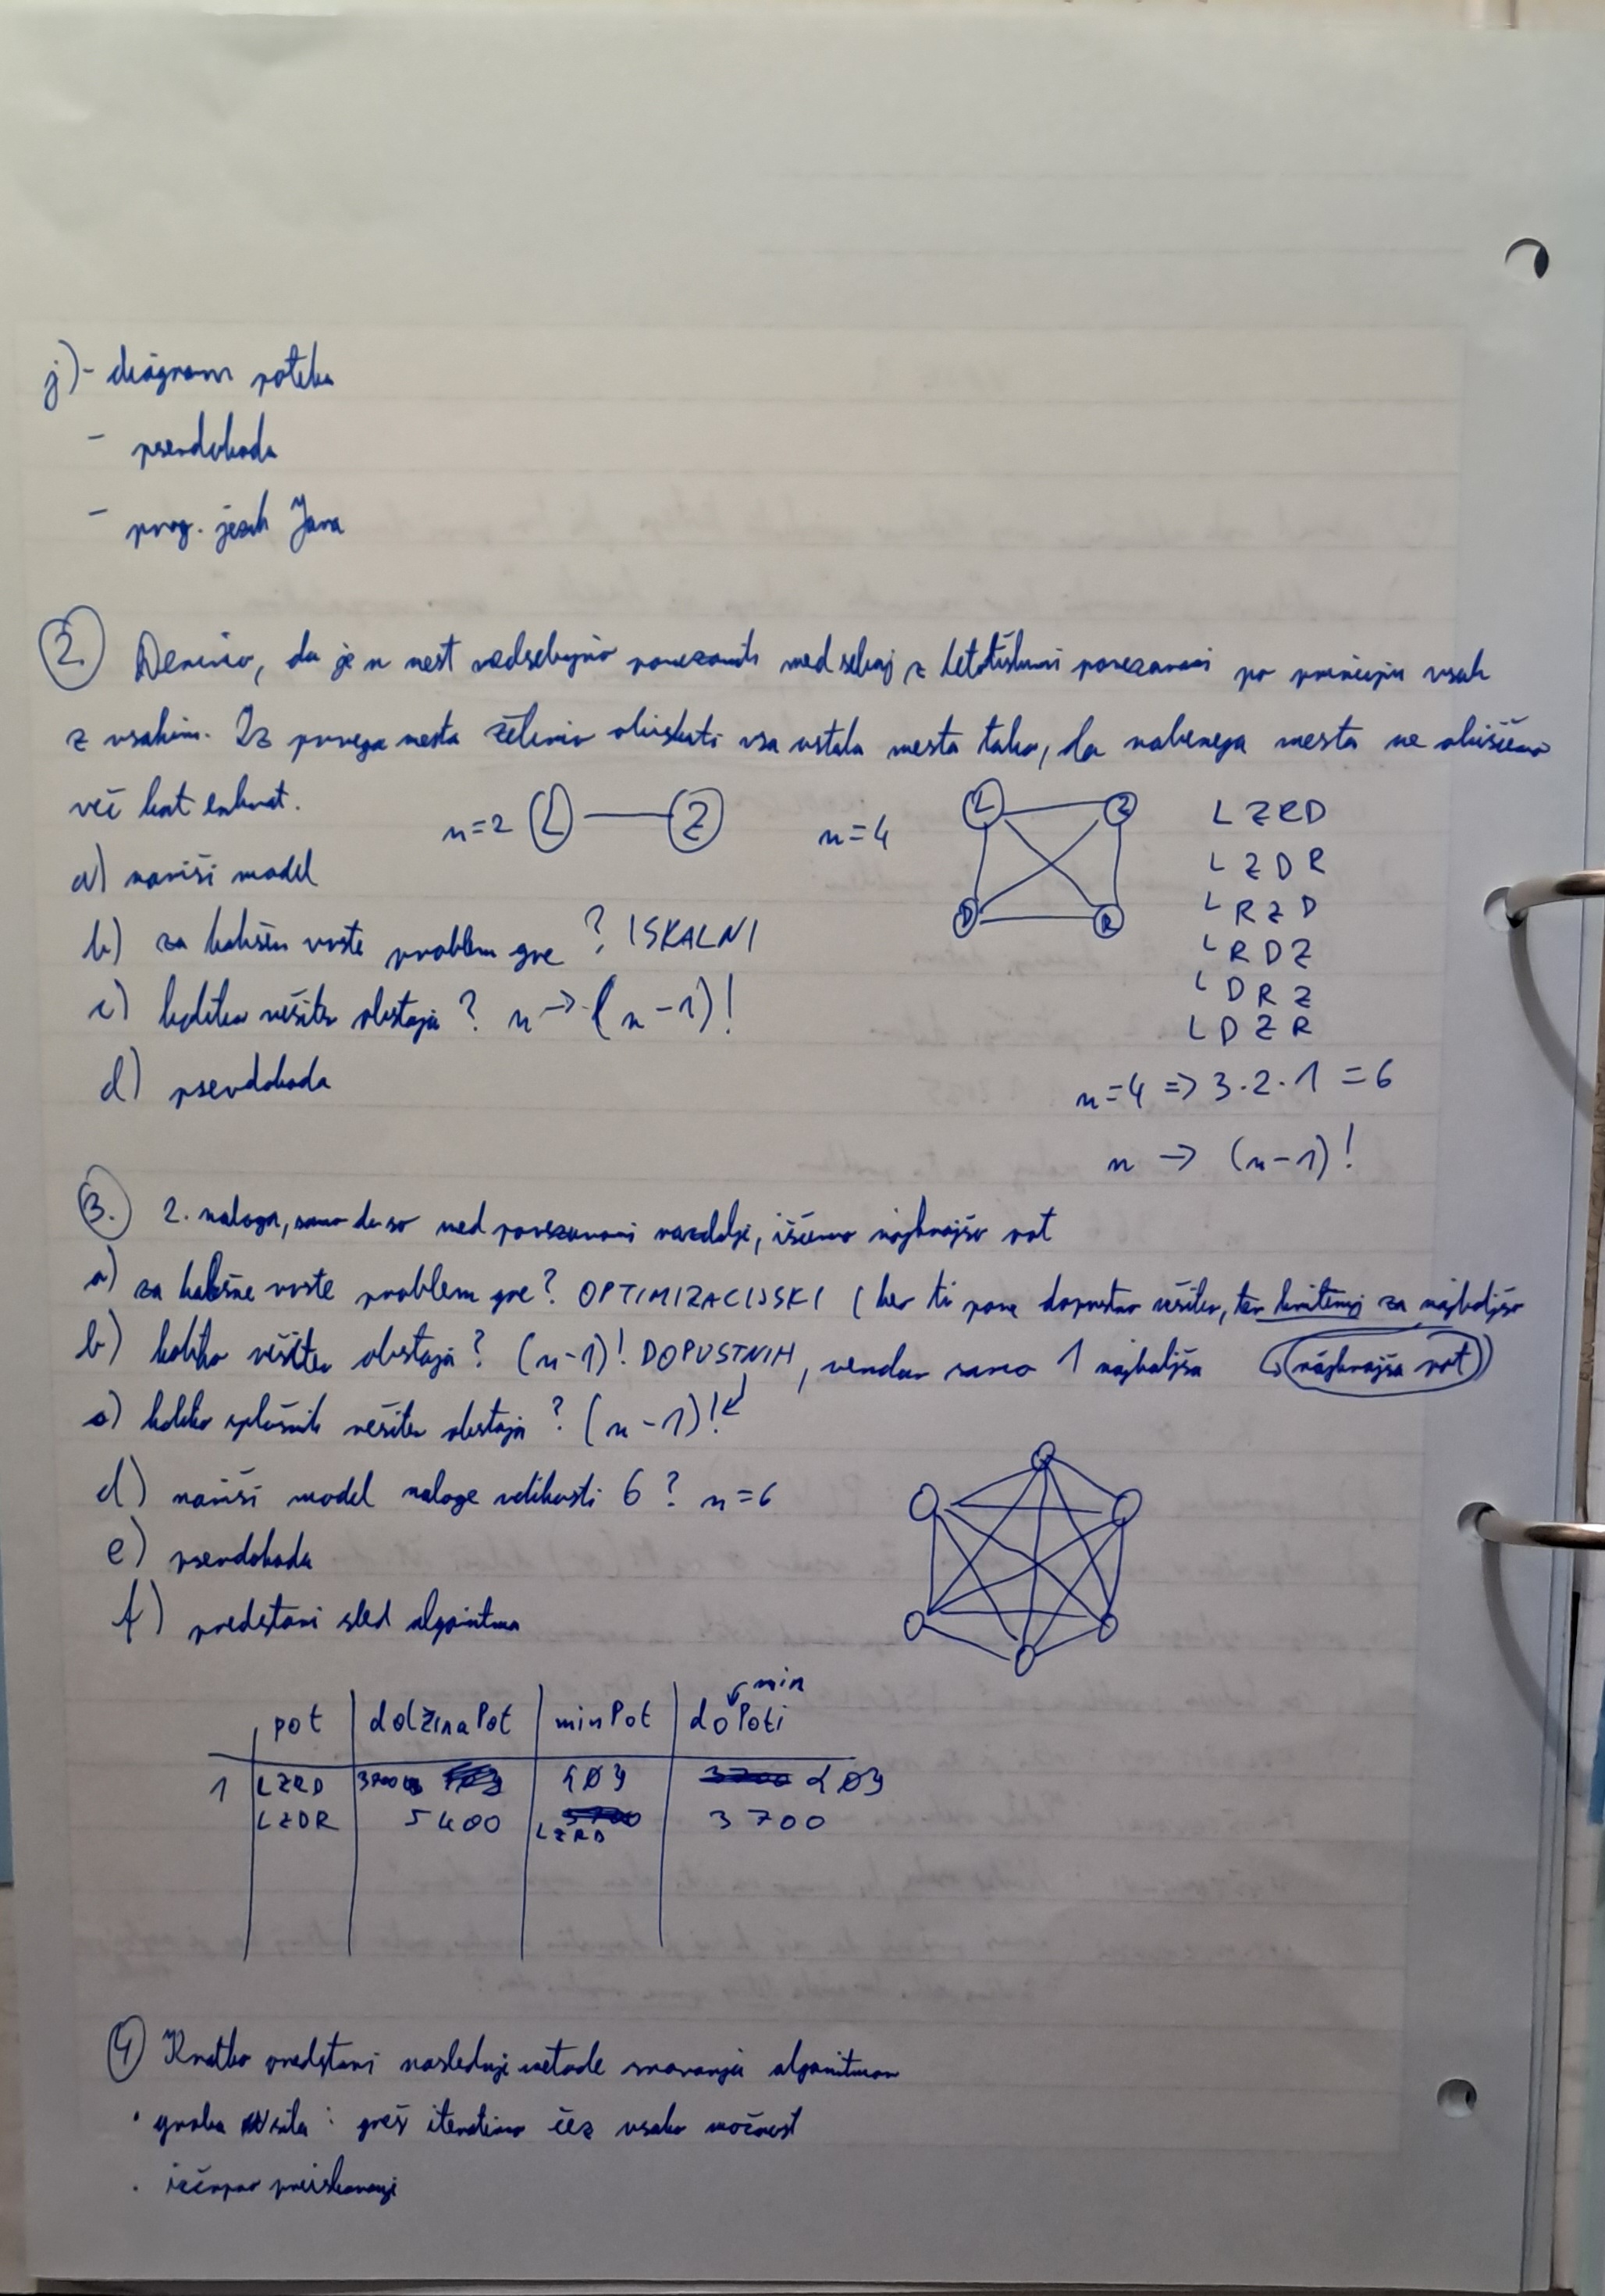 j) - diagram poteka
- psevdokoda
- prog. jezik Java
2. Denimo, da je n mest medsebojno povezanih med seboj z letališkimi povezavami po principu vsak
z vsakim. Iz prvega mesta želimo obiskati vsa ostala mesta tako, da nobenega mesta ne obiščemo
več kot enkrat.
n=2 L Z
n=4 L Z D R
a) nariši model
b) za kakšen vrste problem gre? ISKALNI
c) koliko rešitev obstaja? n → (n-1)!
d) psevdokoda
LZRD
LZDR
LRZD
LRDZ
LDRZ
LDZR
n=4 => 3·2·1 = 6
n → (n-1)!
3. 2. naloga, samo da so med povezavami razdalje, iščemo najkrajšo pot
a) za kakšne vrste problem gre? OPTIMIZACIJSKI (ker ti pove dopustno rešitev, ter kriterij za najboljšo
b) koliko rešitev obstaja? (n-1)! DOPUSTNIH, vendar samo 1 najboljša (najkrajša pot))
c) koliko splošnih rešitev obstaja? (n-1)!
d) nariši model naloge velikosti 6? n=6
e) psevdokoda
f) predstavi sled algoritma
min
pot dolžinaPot minPot doPoti
1 LZRD 3700
LZDR 5400 LZRD 3700
4 Kratko predstavi naslednje metode snovanja algoritmov
• groba sila: greš iterativno čez vsako možnost
• izčrpno preiskovanje